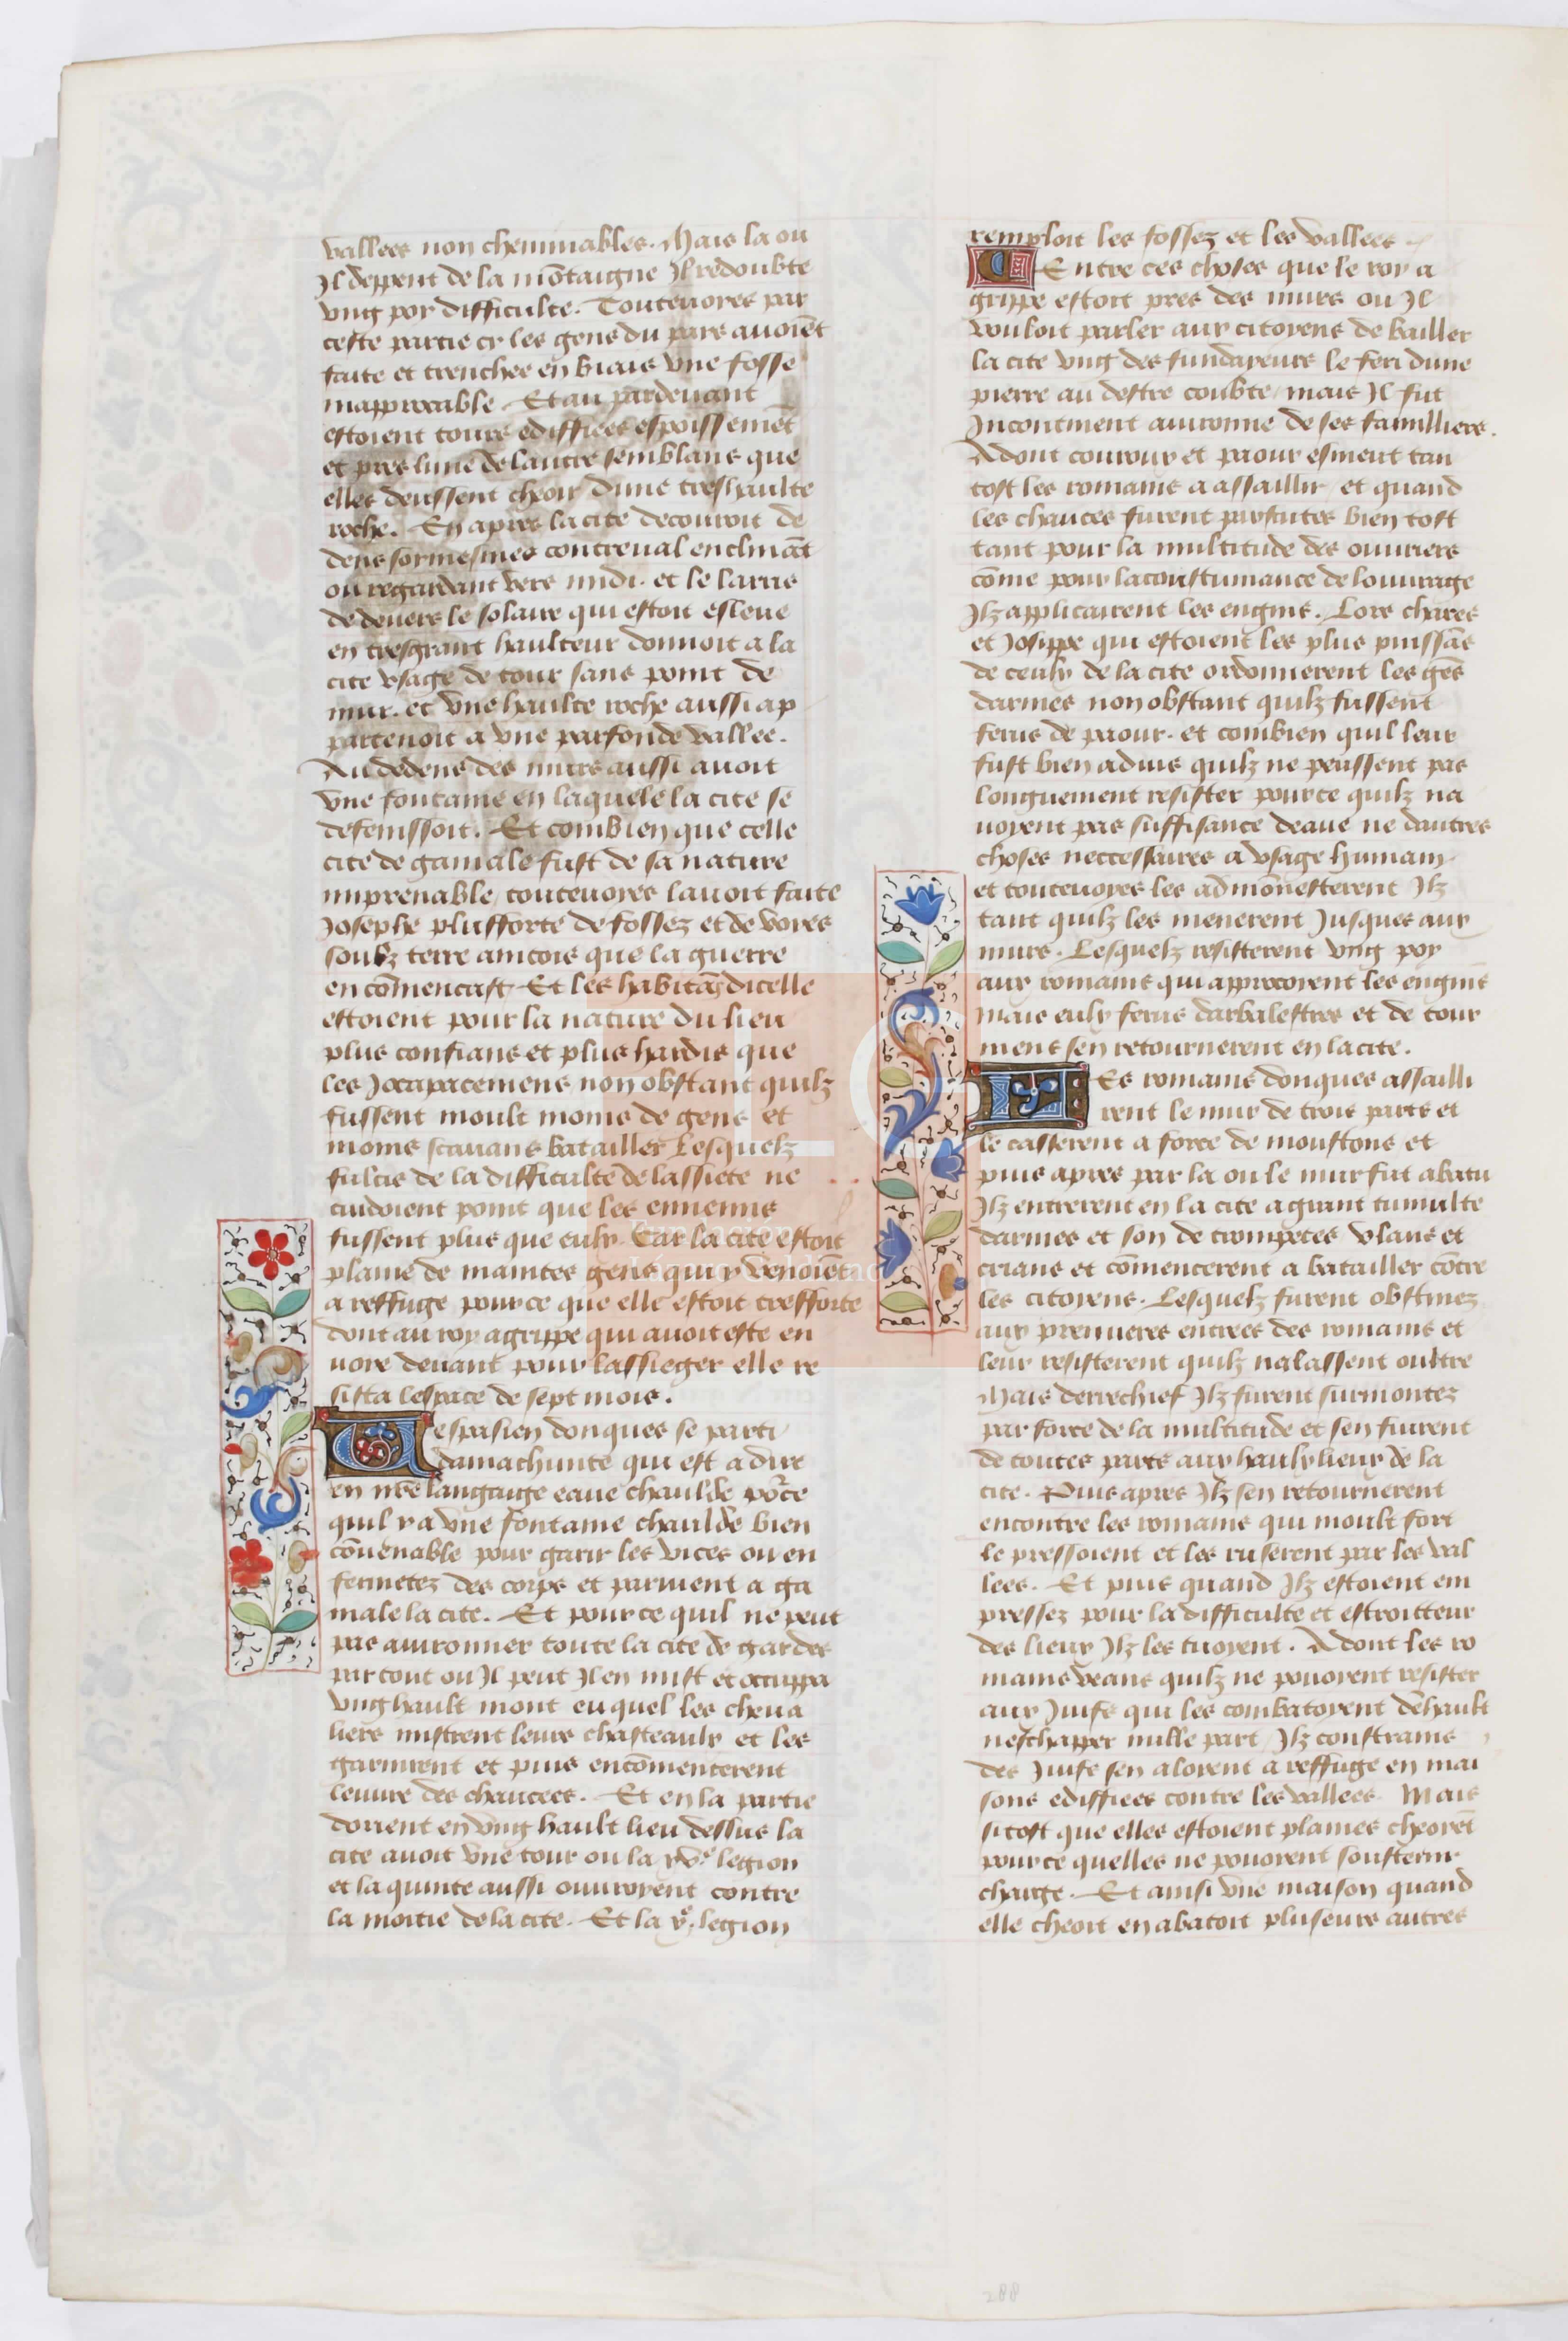 vallees non cheminables. Mais la ou
Il deppent de la mõtaigne Il redoubte
vng poy difficulte. Toutevoies par
ceste partie cy les gens du pais avoiẽt
faite et trenchee en biais vne fosse
inapprocable. Et au pardevant
estoient tours ediffiees espoissemẽt
et pres lune de lautre semblans que
elles deussent cheoir dune treshaulte
roche. En apres la cite decouroit de
dens soymesmes contreval enclinãt
ou regardant vers midi. et le larris
de devers le solaire qui estoit esleve
en tresgrant haulteur donnoit a la
cite vsage de tour sans point de
mur. et vne haulte roche aussi ap
partenoit a vne parfonde vallee.
Au dedens des murs aussi avoit
vne fontaine en laquele la cite se
defenissoit. Et combien que celle
cite de gamale fust de sa nature
imprenable toutevoyes lavoit faite
Josephe plusforte de fossez et de voies
soubz terre aincois que la guerre
en cõmencast. Et les habitãs dicelle
estoient pour la nature du lieu
plus confians et plus hardis que
les Jocapaciens non obstant quilz
fussent moult moins de gens et
moins scavans batailler Lesquelz
fulcis de la difficulte de lassiete ne
cuidoient point que les ennemis
fussent plus que eulx. Car la cite estoit
plaine de maintes gens qui y venoiẽt
a reffuge pource que elle estoit tresforte
dont au roy agrippe qui avoit este en
voie devant pour lassieger elle re
sista lespace de sept mois.
Vespasien donques se parti
damachunte qui est a dire
en nr̃e langaige eaue chaulde põce
quil y a vne fontaine chaulde bien
cõvenable pour garir les vices ou en
fermetez des corps et parvient a ga
male la cite. Et pource quil ne peut
pas avironner toute la cite de gardes
partout ou Il peut Il en mist et occuppa
vng hault mont euquel les cheva
liers mistrent leurs chasteaulx et les
garnirent et puis encõmencerent
leuvre des chaucees. Et en la partie
dorient en vng hault lieu dessus la
cite avoit vne tour ou la xv.e legion
et la quinte aussi ouvroyent contre
la moitie de la cite. Et la x.e legion
remploit les fossez et les vallees
Entre ces choses que le roy a
grippe estoit pres des murs ou Il
vouloit parler aux citoyens de bailler
la cite vng des fundayeurs le feri dune
pierre au destre coubte. mais Il fut
Incontinent avironne de ses familliers.
Adont courroux et paour esmeut tan
tost les romains a assaillir. et quand
les chaucees furent parfaites bien tost
tant pour la multitude des ouvriers
cõme pour lacoustumance de louvrage
Ilz applicairent les engins. Lors chares
et Josippe qui estoient les plus puissãs
de ceulx de la cite ordonnerent les gẽs
darmes non obstant quilz fussent
ferus de paour. et combien quil leur
fust bien advis quilz ne peussent pas
longuement resister pource quilz na
voyent pas suffisance deaue ne dautres
choses neccessaires a vsage humain
et toutevoyes les admõnesterent Ilz
tant quilz les menerent Jusques aux
murs. Lesquelz resisterent vng poy
aux romains qui approcoient les engins
mais eulx ferus darbalestres et de tour
mens sen retournerent en la cite.
Les romains donques assailli
rent le mur de trois pars et
le casserent a force de moustons et
puis apres par la ou le mur fut abatu
Ilz entrerent en la cite a grant tumulte
darmes et son de trompetes vlans et
crians et cõmencerent a batailler cõtre
les citoyens. Lesquelz furent obstinez
aux premieres entrees des romains et
leur resisterent quilz nalassent oultre
Mais derrechief Ilz furent surmontez
par force de la multitude et sen fuirent
de toutes pars aux haulx lieux de la
cite. Puis apres Ilz sen retournerent
encontre les romains qui moult fort
le pressoient et les ruserent par les val
lees. Et puis quand Ilz estoient em
pressez pour la difficulte et estroitteur
des lieux Ilz les tuoyent. Adont les ro
mains veans quilz ne povoient resister
aux Juifs qui les combatoyent dehault
neschapper nulle part Ilz constrains
des Juifs sen aloyent a reffuge en mai
sons ediffiees contre les vallees. Mais
sitost que elles estoient plaines cheoiẽt
pource quelles ne povoient soustenir
charge. Et ainsi vne maison quand
elle cheoit en abatoit pluseurs autres